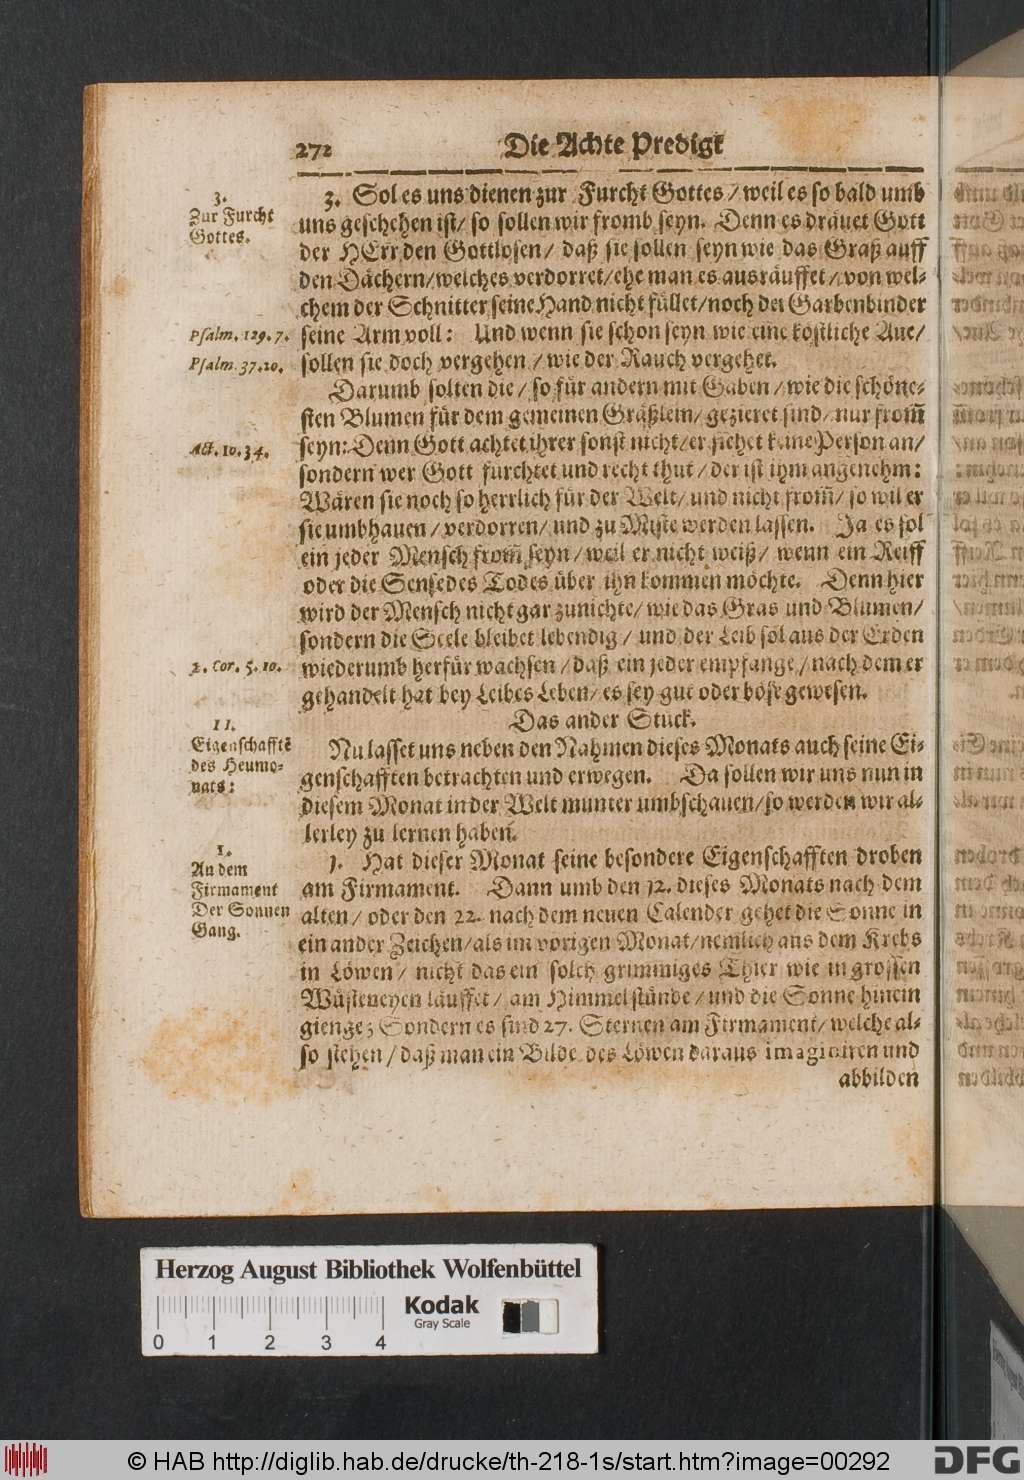 272 Die Achte Predigt
3.
Zur Furcht
Gottes.
3. Sol es uns dienen zur Furcht Gottes / weil es so bald umb
uns geschehen ist / so sollen wir fromb seyn. Denn es dräuet Gott
der HErr den Gottlosen / daß sie sollen seyn wie das Graß auff
den Dächern / welches verdorret / ehe man es ausräuffet / von wel-
chem der Schnitter seine Hand nicht füllet / noch der Garbenbinder
Psalm. 129. 7.
seine Arm voll: Und wenn sie schon seyn wie eine köstliche Aue /
Psalm. 37. 20.
sollen sie doch vergehen / wie der Rauch vergehet.
Darumb solten die / so für andern mit Gaben / wie die schöne-
sten Blumen für dem gemeinen Gräßlein / gezieret sind / nur from̃
Act. 10. 34.
seyn: Denn Gott achtet ihrer sonst nicht / er siehet keine Person an /
sondern wer Gott fürchtet und recht thut / der ist ihm angenehm:
Wären sie noch so herrlich für der Welt / und nicht from̃ / so wil er
sie umbhauen / verdorren / und zu Miste werden lassen. Ja es sol
ein jeder Mensch from̃ seyn / weil er nicht weiß / wenn ein Reiff
oder die Sense des Todes über ihn kommen möchte. Denn hier
wird der Mensch nicht gar zunichte / wie das Gras und Blumen /
sondern die Seele bleibet lebendig / und der Leib sol aus der Erden
2. Cor. 5. 10.
wiederumb herfür wachsen / daß ein jeder empfange / nach dem er
gehandelt hat bey Leibes Leben / es sey gut oder böse gewesen.
Das ander Stück.
II.
Eigenschafftẽ
des Heumo-
nats:
Nu lasset uns neben den Nahmen dieses Monats auch seine Ei-
genschafften betrachten und erwegen. Da sollen wir uns nun in
diesem Monat in der Welt munter umbschauen / so werden wir al-
lerley zu lernen haben.
1.
An dem
Firmament
Der Sonnen
Gang.
1. Hat dieser Monat seine besondere Eigenschafften droben
am Firmament. Dann umb den 12. dieses Monats nach dem
alten / oder den 22. nach dem neuen Calender gehet die Sonne in
ein ander Zeichen / als im vorigen Monat / nemlich aus dem Krebs
in Löwen / nicht das ein solch grimmiges Thier wie in grossen
Wüsteneyen läuffet / am Himmel stünde / und die Sonne hinein
gienge; Sondern es sind 27. Sternen am Firmament / welche al-
so stehen / daß man ein Bilde des Löwen daraus imaginiren und
abbilden
Herzog August Bibliothek Wolfenbüttel
0 1 2 3 4
Kodak
Gray Scale
© HAB http://diglib.hab.de/drucke/th-218-1s/start.htm?image=00292
DFG